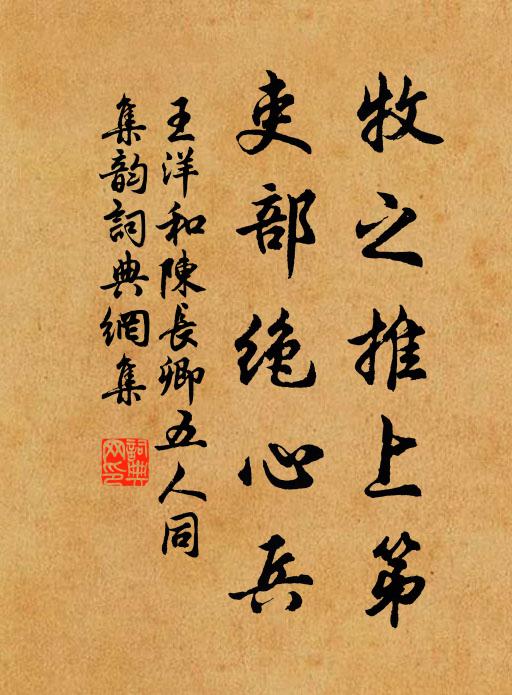 牧之推上第
吏部絶心兵
王洋和陳長卿五人同
集韵詞典網集
詞典
网印